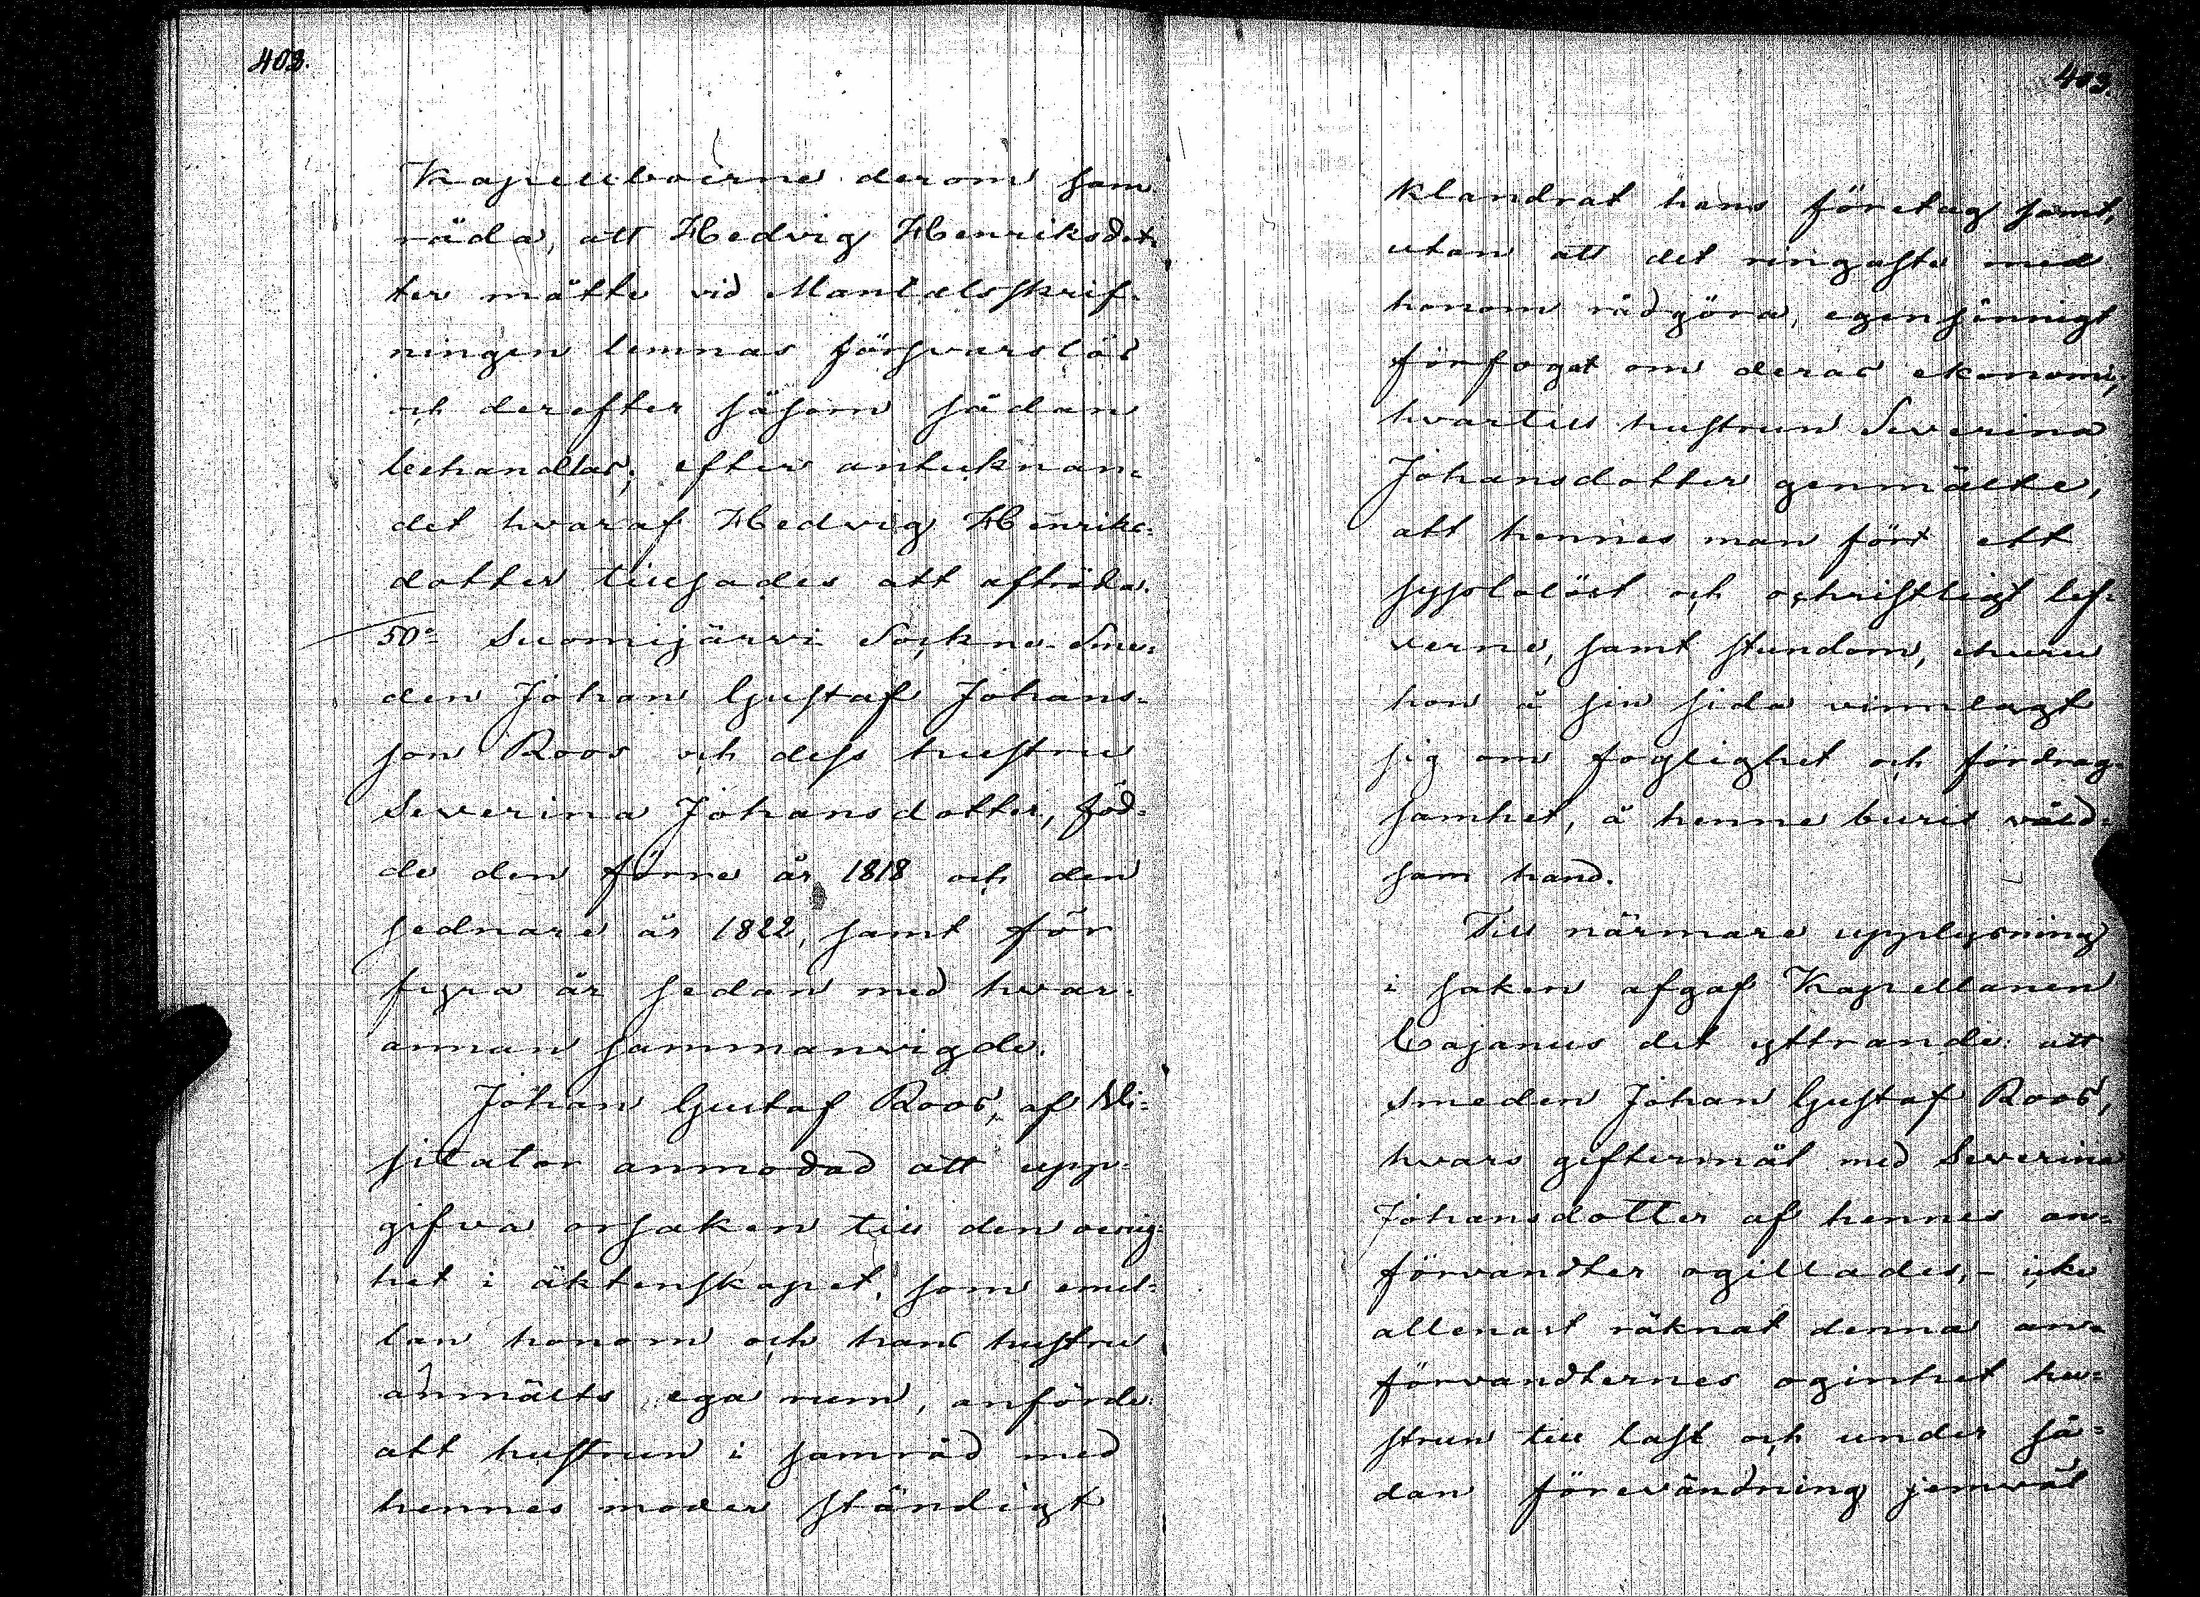 403.
Kapellboerne derom sam
råda, att Hedvig Henriksdot-
ter måtte vid Mantalsskrif-
ningen lemnas försvarslös
och derefter såsom sådan
behandlas; efter antecknan-
det hvaraf Hedvig Henriks-
dotter tillsades att afträda.
50o Suomijärvi Sockne Sme-
den Johan Gustaf Johans-
son Roos och dess hustru
Severina Johansdotter, föd-
de den förre år 1818 och den
sednare år 1822, samt för
fyra år sedan med hvar-
annan sammanvigde.
Johan Gustaf Roos, af Vi-
sitator anmodad att upp-
gifva orsaken till den oenig-
het i äktenskapet, som emel-
lan honom och hans hustru
anmälts ega rum, anförde
att hustrun i samråd med
hennes moder ständigt
403.
klandrat hans företag samt,
utan att det ringaste med
honom rådgöra, egensinnigt
förfogat om deras ekonomi;
hvartill hustrun Severina
Johansdotter genmälte,
att hennes man fört ett
sysslolöst och ochristligt lef-
verne, samt stundom, ehuru
hon å sin sida vinnlagt
sig om foglighet och fördrag-
samhet, å henne burit våld-
sam hand.
Till närmare upplysning
i saken afgaf Kapellanen
Cajanus det yttrande: att
smeden Johan Gustaf Roos,
hvars giftermål med Severina
Johansdotter af hennes an-
förvandter ogillades, - icke
allenast räknat denna an-
förvandternes oginhet hu-
strun till last och under så-
dan förevändning jemväl